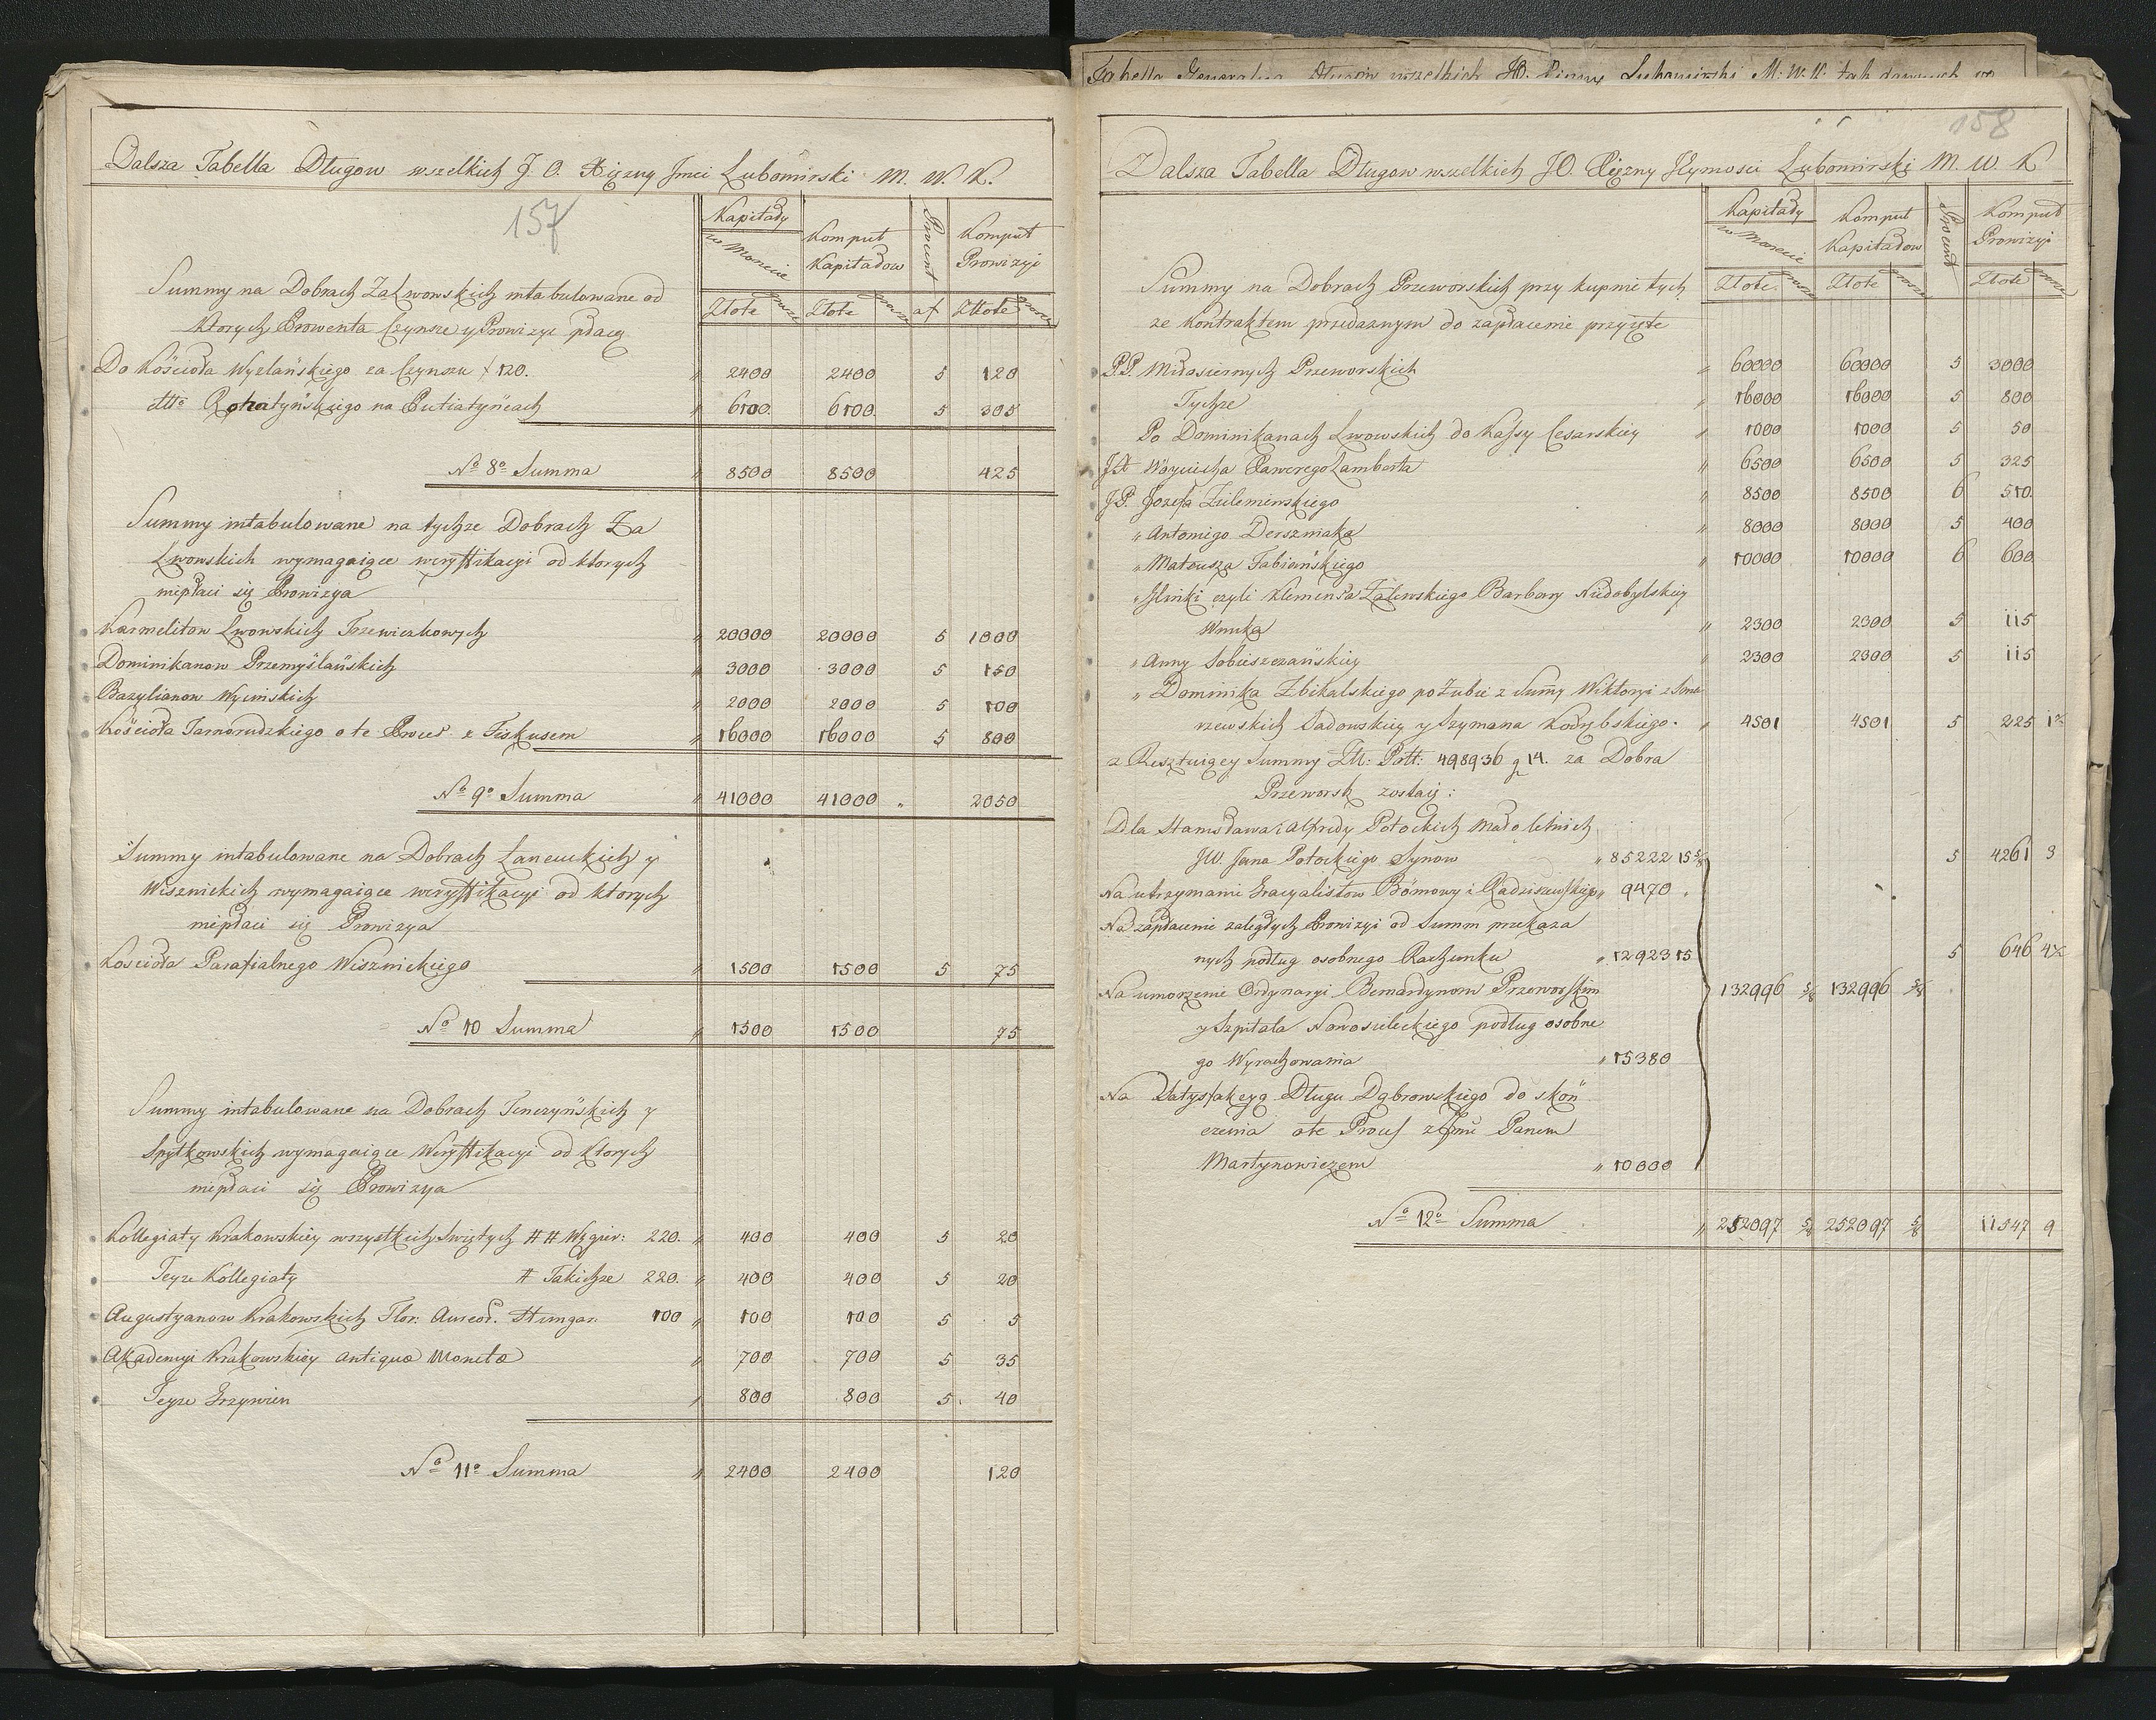 Dalsza Tabella Długow wszelkich J. O. Xiężny Jmci Lubomirski M. W. K.
157
Kapitały w Monecie Komput Kapitałow Procent Komput Prowizyi
Złote grosze Złote grosze af Złłote grosze
Summy na Dobrach Zalwowskich intabulowane od
ktorych Prowenta Czynsze y Prowizye płacą
Do Kościoła Wyzlańskiego za Czynszu f 120. " 2400 2400 5 120
dtto Rohatyńskiego na Putiatyńcach " 6100. 6100. 5 305
No 8o Summa " 8500 8500 425
Summy intabulowane na tychze Dobrach Za
Lwowskich wymagaiące weryffikacyi od ktorych
niepłaci się Prowizya
Karmelitow Lwowskich Trzewiczkowych " 20000 20000 5 1000
Dominikanow Przemyślańskich " 3000 3000 5 150
Bazylianow Wycinskich " 2000 2000 5 100
Kościoła Tarnorudzkiego o te Proces z Fiskusem " 16000 16000 5 800
No 9o Summa " 41000 41000 " 2050
Summy intabulowane na Dobrach Łancuckich y
Wisznickich wymagaiące weryffikacyi od ktorych
niepłaci się Prowizya
Kościoła Parafialnego Wisznickiego " 1500 1500 5 75
No 10 Summa " 1500 1500 75
Summy intabulowane na Dobrach Tenczyńskich y
Spytkowskich wymagaiące Weryffikacyi od Ktorych
niepłaci się Prowizya
Kollegiaty Krakowskiey wszystkich Swiętych # # Węgier: 220. " 400 400 5 20
Teyze Kollegiaty # Takichze 220. " 400 400 5 20
Augustyanow Krakowskich Flor: Aureor. Hungar. 100 " 100 100 5 5
Akademyi Krakowskiey antiqua Moneta " 700 700 5 35
Teyze Grzywien " 800 800 5. 40
No 11o Summa " 2400 2400 120
Tabella Generalna Długow wszelkich JO. Xiężny Lubomirski M: W: K: tak dawnych
158
Dalsza Tabella Długow wszelkich JO. Xiężny JEymosci Lubomirski M. W. K
Kapitały w Monecie Komput Kapitałow Procent Komput Prowizyi
Złote grosze Złote grosze Złote grosze
Summy na Dobrach Przeworskich przy kupnie tych
ze Kontraktem przedaznym do zapłacenie przyięte
P.P. Miłosiernych Przeworskich " 60000 60000 5 3000
Tychze " 16000 16000 5 800
Po Dominikanach Lwowskich do Kassy Cesarskiey " 1000 1000 5 50
JX Woyciecha Xawerego Lamberta " 6500 6500 5 325
J.P. Jozefa Zuleminskiego " 8500 8500 6 510.
" Antoniego Derszniaka " 8000 8000 5 400
" Mateusza Fabiańskiego " 10000 10000 6 600
" Jlinki czyli Klemensa Zalewskiego Barbary Niedobylskiey
Wnuka " 2300 2300 5 115
" Anny Sobieszczańskiey " 2300 2300 5 115
" Dominika Zbikalskiego po Zubie z Summy Wiktoryi z Sme
rzewskich Sadowskiey y Szymona Kodrębskiego. " 4501 4501 5 225 1½
z Resztuiącey Summy Złł: Poll: 498936 g 14. za Dobra
Przeworsk zostaie:
Dla Stanisława i Alfredy Potockich małoletnich
JW. Jana Potockiego Synow " 85222 15 5/8 5 4261 3
Na utrzymanie Gracyalistow Bömowy i Radziszewskiego " 9470 .
Na zapłacenie zaległych Prowizyi od Summ przekaza
nych podług osobnego Rachunku " 12923 15 5 646 4½
Na umorzenie Ordynaryi Bernardynow Przeworskim 132996 5/8 132996 5/8
y Szpitala Nowosieleckiego podług osobne
go Wyrachowania " 15380
Na Satysfakcyą Długu Dąbrowskiego do skoń
czenia o te Proces z Jmć Panem
Martynowiczem " 10000
No 12o Summa " 252097 5/8 252097 5/8 11047 9